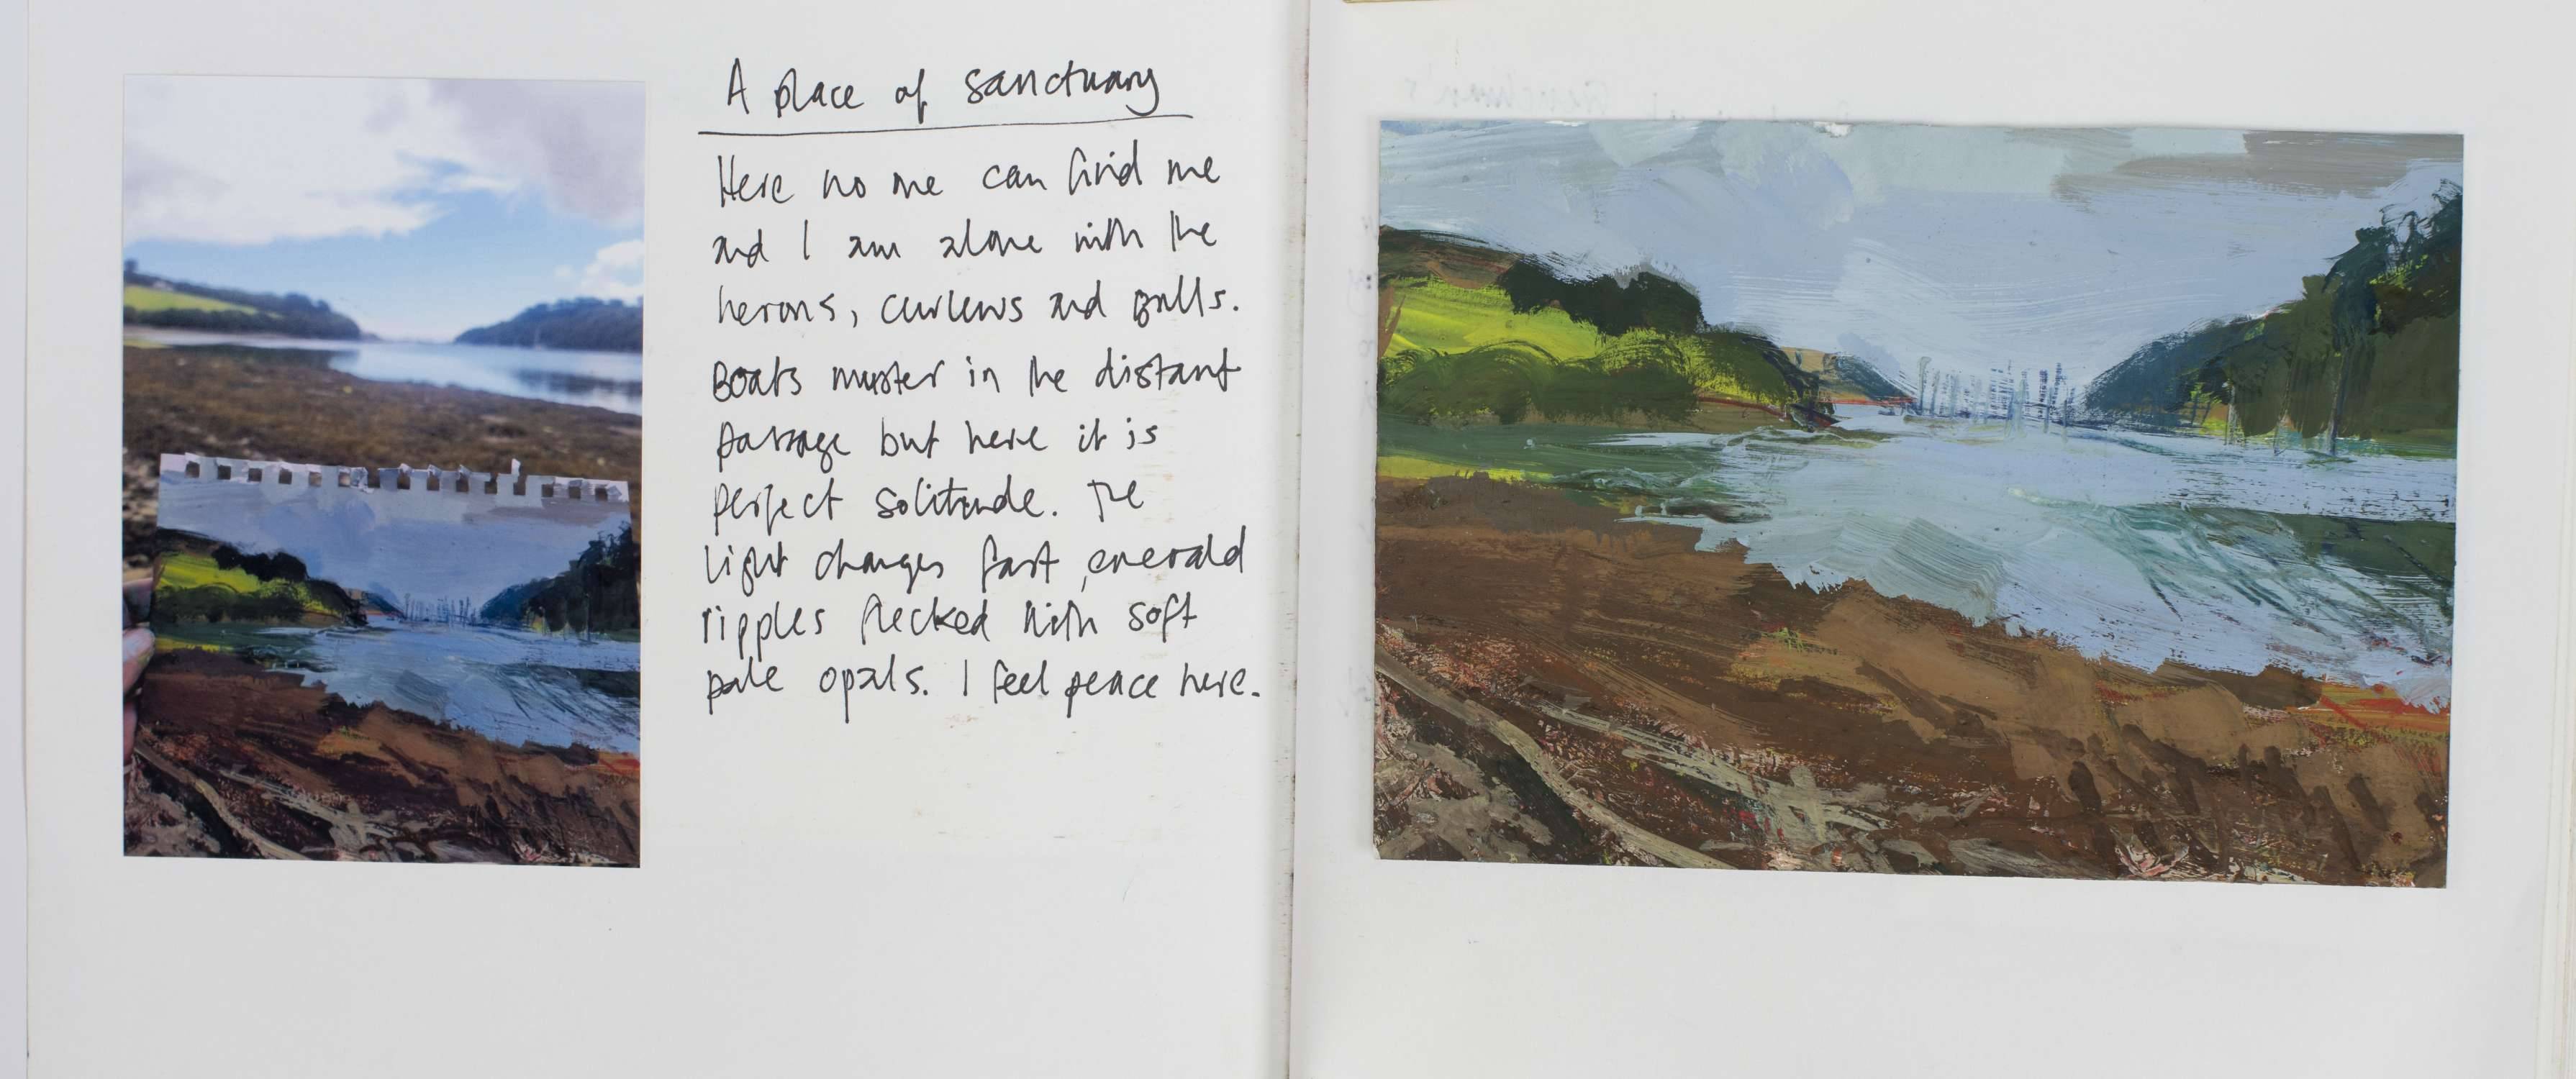 A place of sanctuary
Here no one can find me
and I am alone with the
herons, curlews and gulls.
Boats muster in the distant
passage but here it is
perfect solitude. The
light changes fast, emerald
ripples flecked with soft
pale opals. I feel peace here.